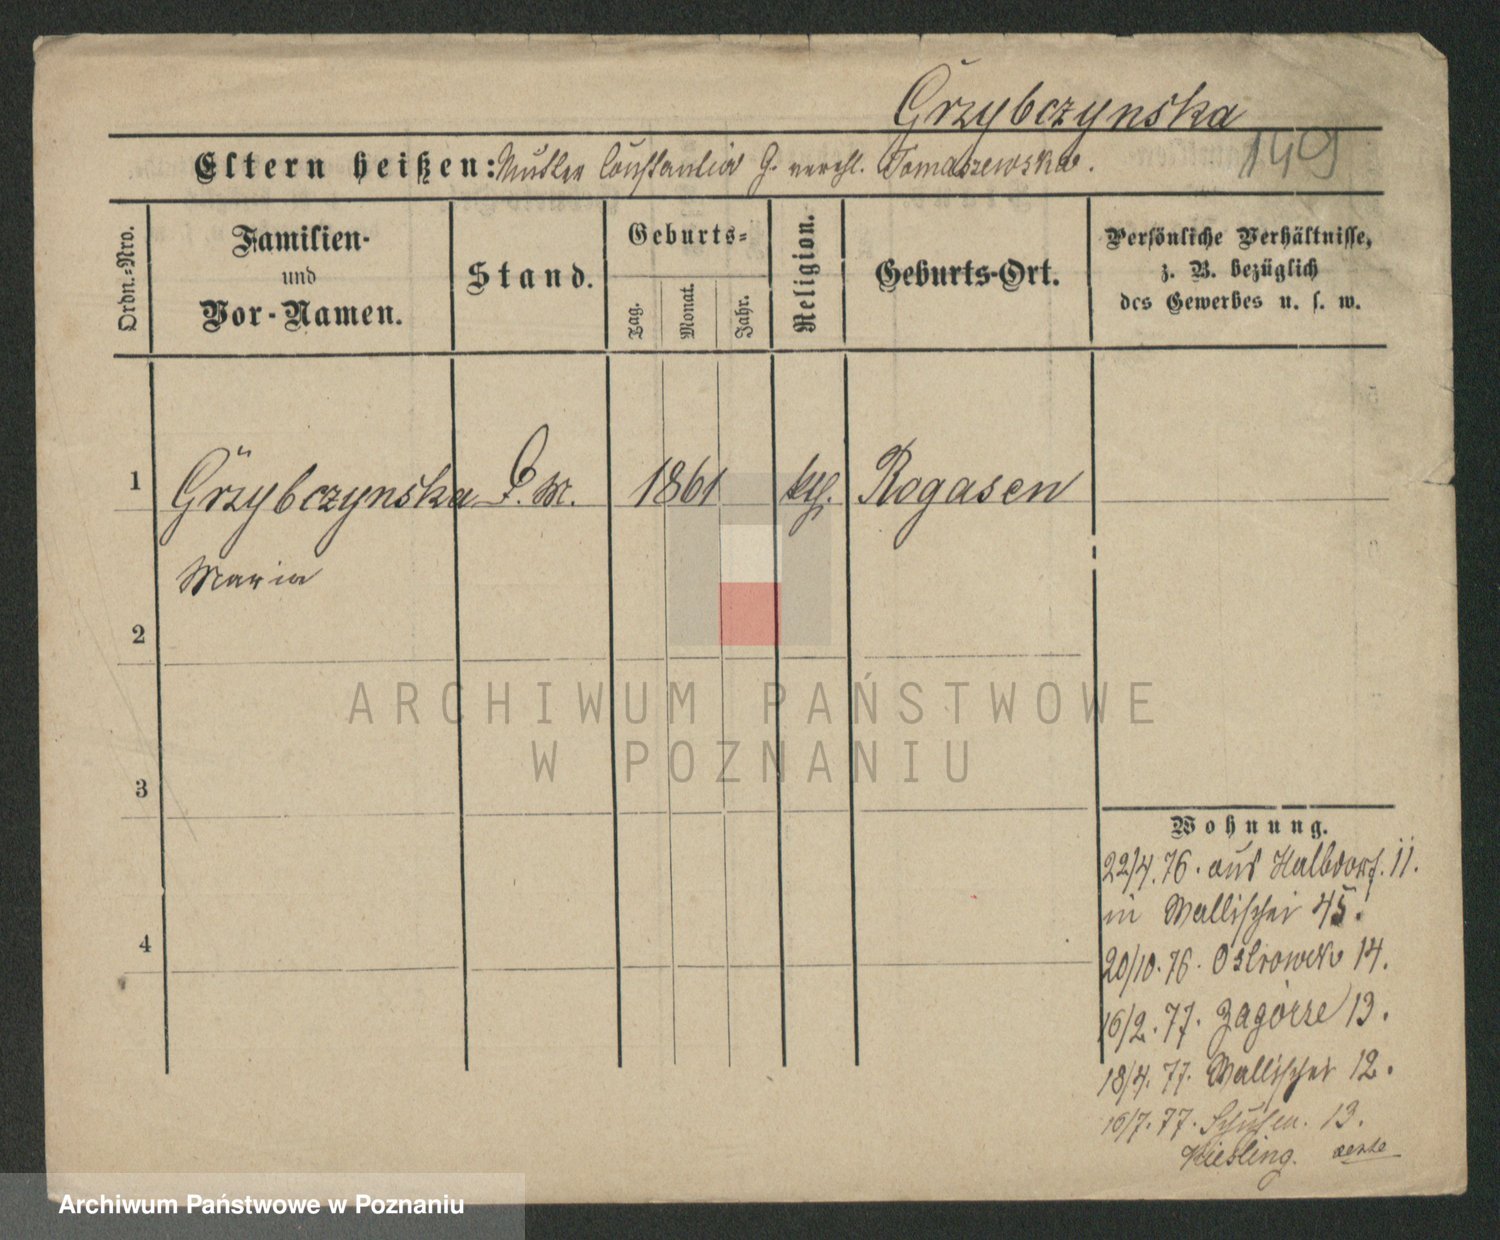 Grzybczynska
149
Eltern heißen: Mutter Constantia G. verehl. Tomaszewska.
Ordn.-Nro.
Familien-
und
Vor-Namen.
Stand.
Geburts-
Tag.
Monat.
Jahr.
Religion.
Geburts-Ort.
Persönliche Verhältnisse,
z. B. bezüglich
des Gewerbes u. s. w.
1 Grzybczynska D. M. 1861 kth. Rogasen
Maria
2
ARCHIWUM PAŃSTWOWE
W POZNANIU
3
4
Wohnung.
22/4. 76. aus Halbdorf. 11.
in Wallischei 45.
20/10. 76. Ostrowek 14.
16/2. 77. Zagórze 13.
18/4. 77. Wallischei 12.
16/7. 77. Schützen. 13.
Kiesling.
Archiwum Państwowe w Poznaniu